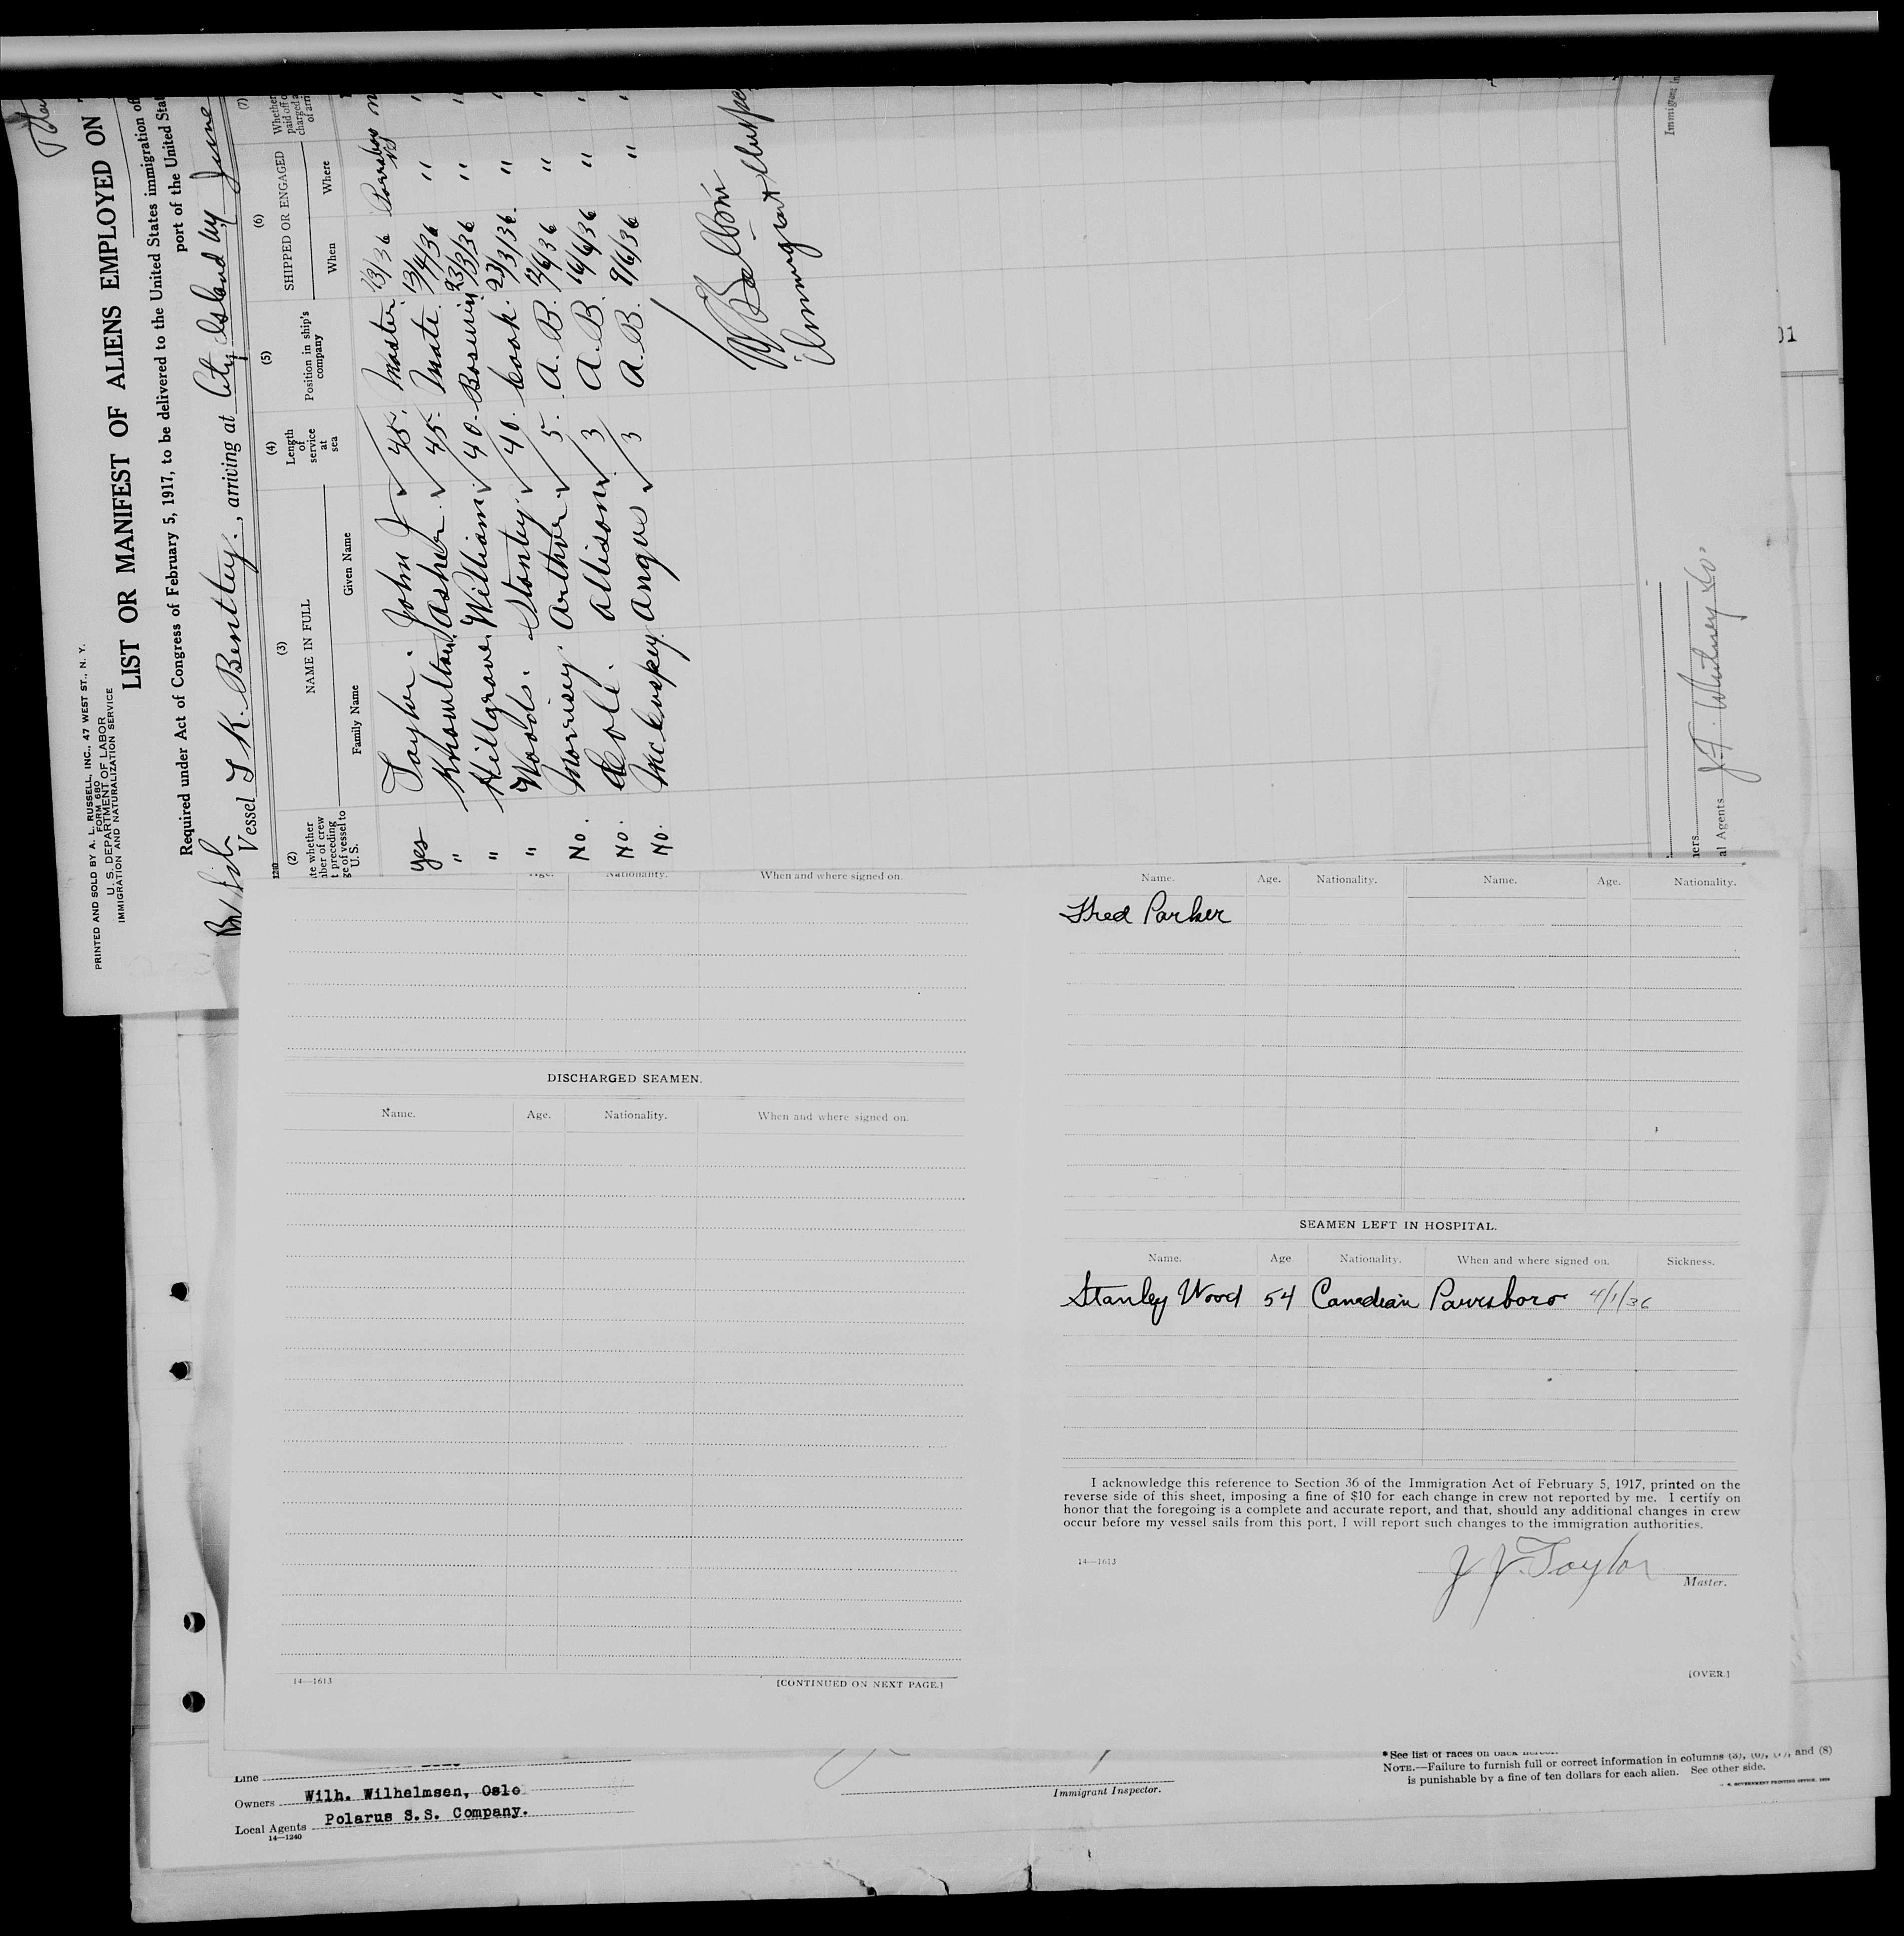 PRINTED AND SOLD BY A. L. RUSSELL, INC., 47 WEST ST., N. Y.
FORM 680
U. S. DEPARTMENT OF LABOR
IMMIGRATION AND NATURALIZATION SERVICE
LIST OR MANIFEST OF ALIENS EMPLOYED ON
Required under Act of Congress of February 5, 1917, to be delivered to the United States immigration of
port of the United Stat
Vessel T K. Bentley., arriving at City Island N.Y. June
1240
(2) (3) (4) (5) (6) (7)
NAME IN FULL
SHIPPED OR ENGAGED
te whether
ber of crew
t preceding
ge of vessel to
U.S.
Family Name Given Name
Length
of
service
at
sea
Position in ship's
company
When Where
Whether
paid off o
charged a
of arri
yes Taylor. John J 45. Master 13/36 Parrsboro NS
" Knowlton Asher. 45. Mate. 13/4/36 "
" Hillgrove William 40. Boswin 23/3/36 "
" Woods. Stanley. 40. Cook. 23/3/36. "
No. Morrisey. Arthur 5. A.B. 12/6/36 "
No. Cole. Allison 3 A.B. 16/6/36 "
No. McCluskey. Angus 3 A.B. 9/6/36 "
Immigrant Inspe
Immigrant In
ners
al Agents J.F. Whitney &Co.
01
Age. Nationality. When and where signed on.
DISCHARGED SEAMEN.
Name. Age. Nationality. When and where signed on.
14—1613
[CONTINUED ON NEXT PAGE.]
Name. Age. Nationality. Name. Age. Nationality.
Fred Parker
SEAMEN LEFT IN HOSPITAL.
Name. Age Nationality. When and where signed on. Sickness.
Stanley Wood 54 Canadian Parrsboro 4/1/36
I acknowledge this reference to Section 36 of the Immigration Act of February 5, 1917, printed on the
reverse side of this sheet, imposing a fine of $10 for each change in crew not reported by me. I certify on
honor that the foregoing is a complete and accurate report, and that, should any additional changes in crew
occur before my vessel sails from this port, I will report such changes to the immigration authorities.
14—1613
J J. Taylor
Master.
[OVER.]
Line
Owners Wilh. Wilhelmsen, Oslo
Local Agents Polarus S.S. Company.
14—1240
Immigrant Inspector.
*See list of races on back hereof.
NOTE.—Failure to furnish full or correct information in columns (3), (6), (7), and (8)
is punishable by a fine of ten dollars for each alien. See other side.